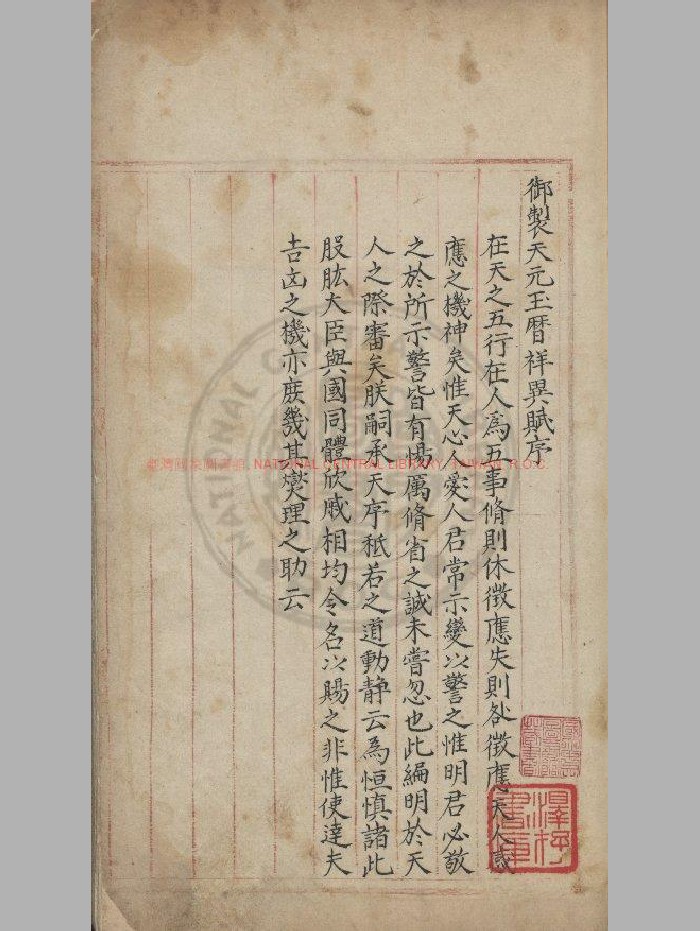 御製天元玉曆祥異賦序
在天之五行在人為五事脩則休徵應失則咎徵應天人感
應之機神矣惟天心人愛人君常示變以警之惟明君必敬
之於所示警皆有惕厲脩省之誠未嘗忽也此編明於天
人之際審矣朕嗣承天序秪若之道動静云為恒慎諸此
股肱大臣與國同體欣戚相均令名以賜之非惟使達夫
吉凶之機亦庶幾其爕理之助云
臺灣國家圖書館 NATIONAL CENTRAL LIBRARY, TAIWAN, R.O.C.
澤存書庫